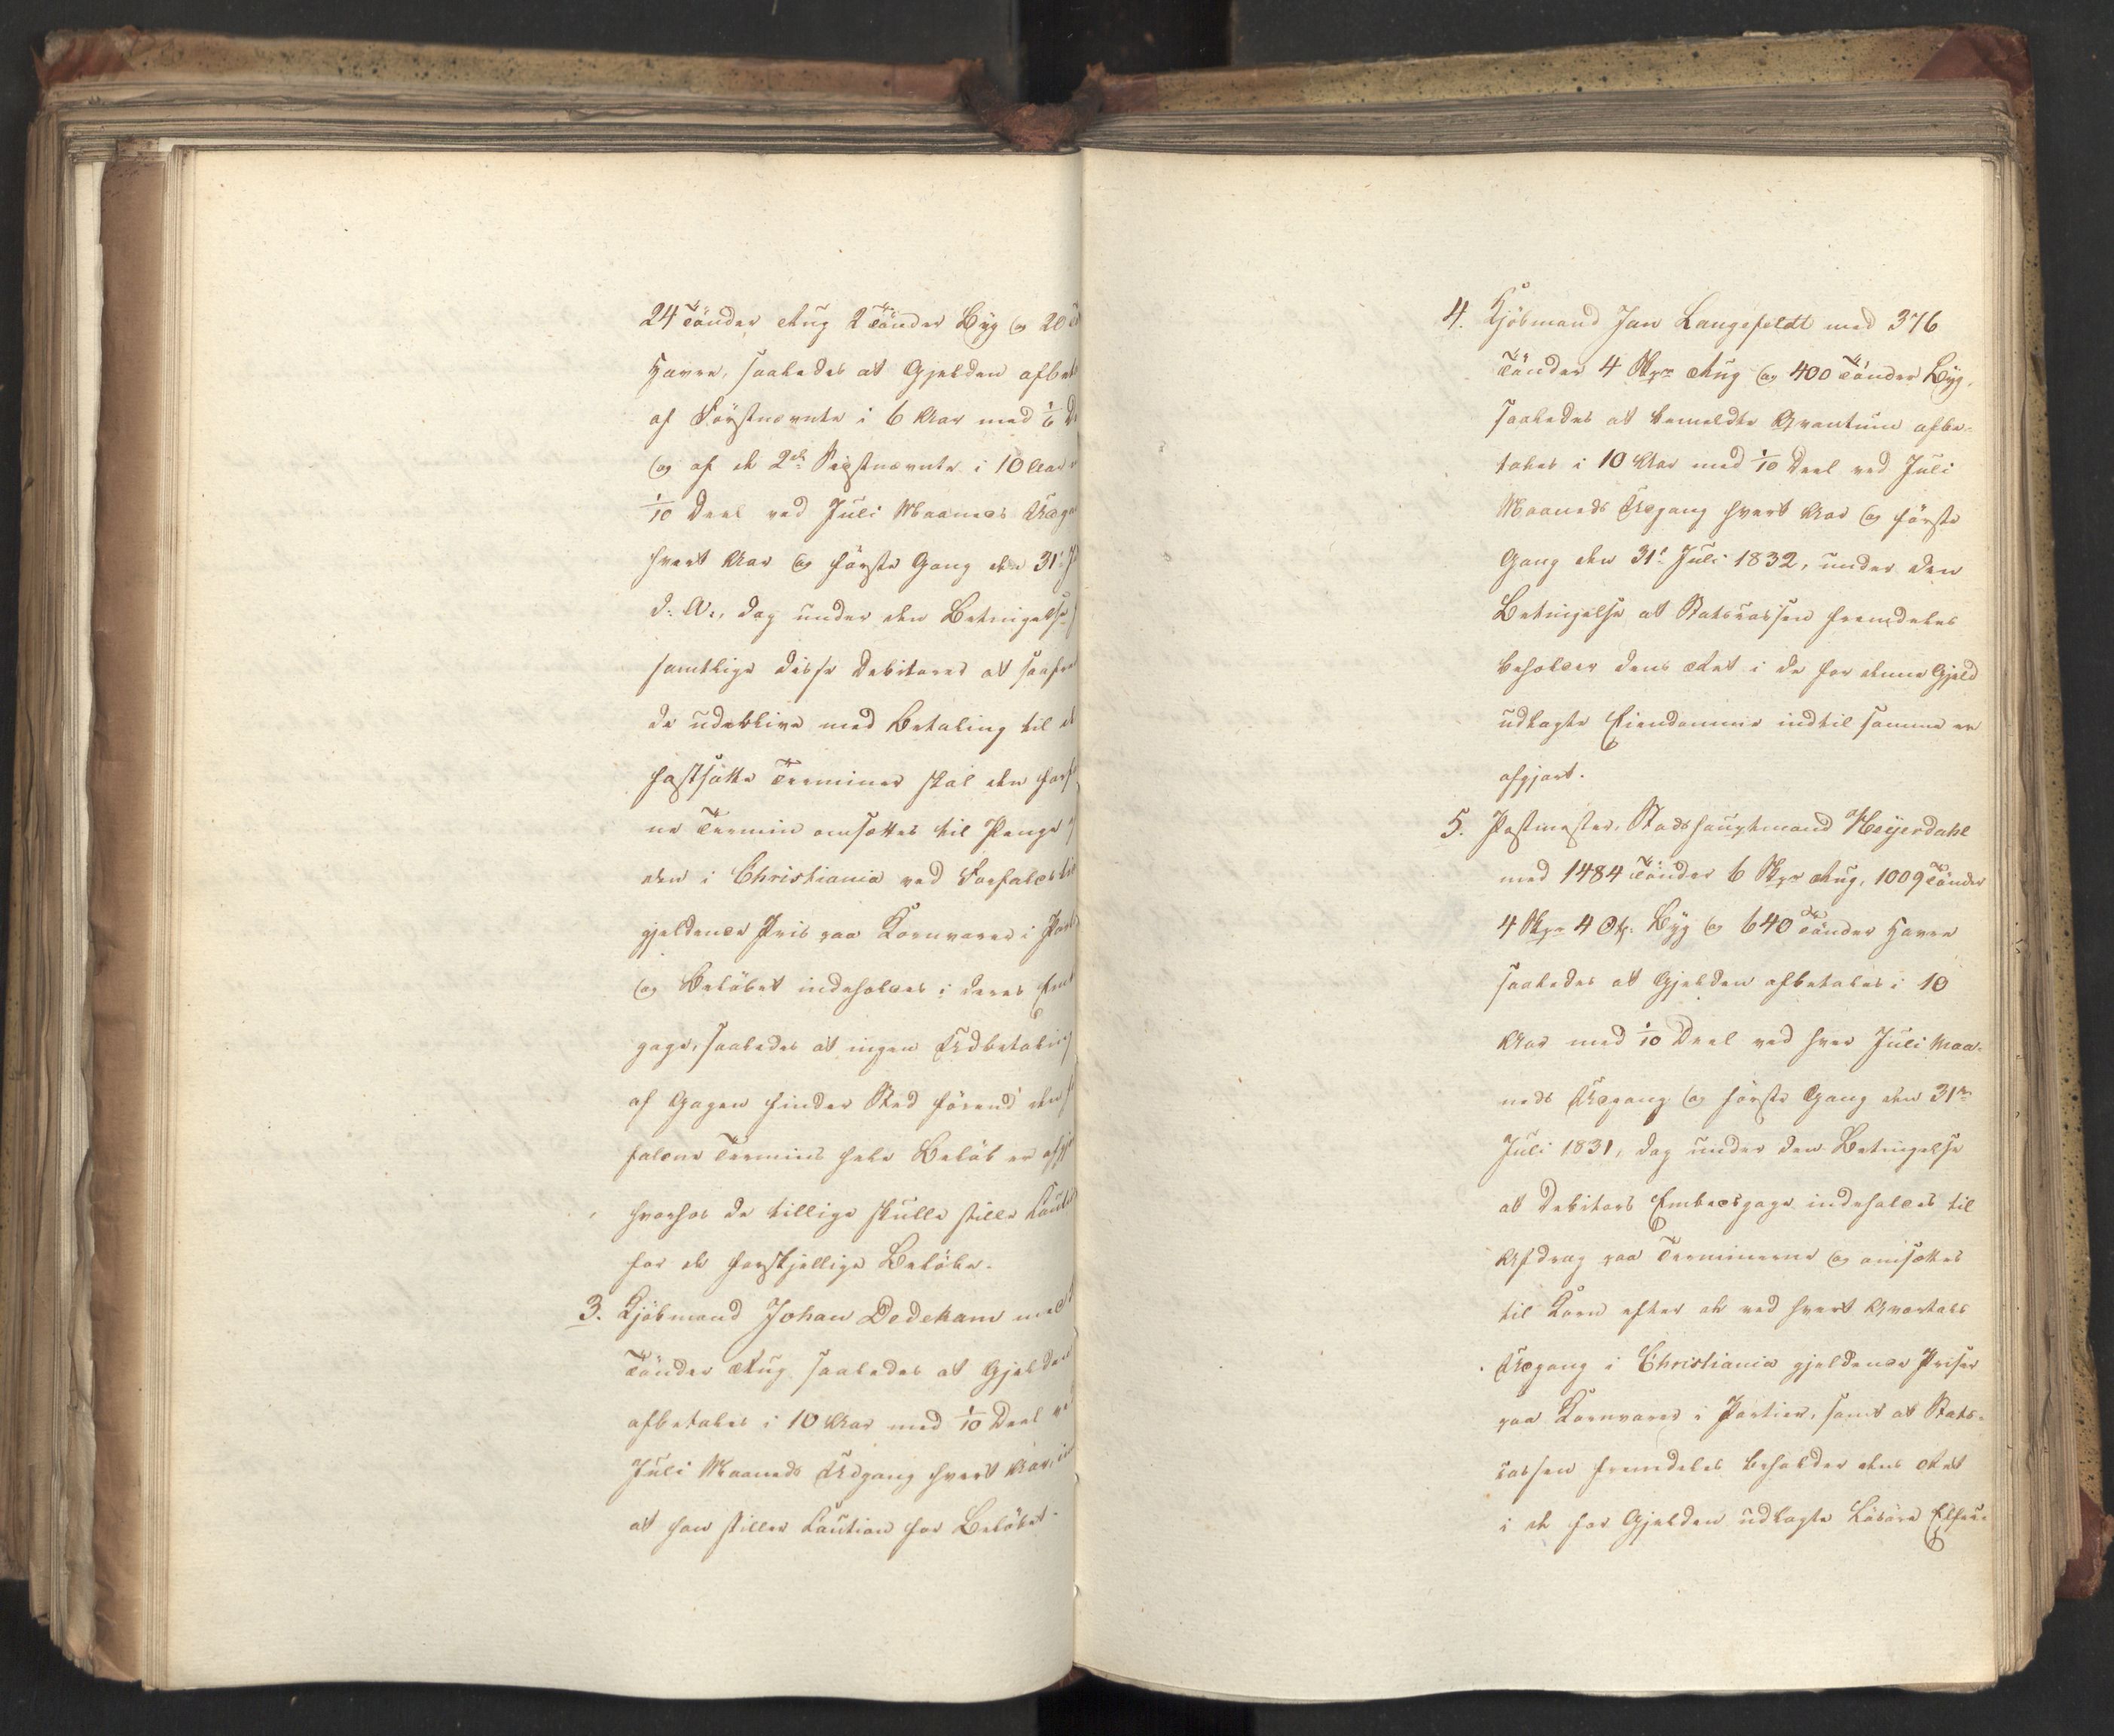 24 Tönder Rug 2 Tönder Byg og 20
Havre, saaledes at Gjelden afbet
af Förstnævnte i 6 Aar med 1/6 De
og af de 2de Sidstnævnte i 10 Aar
1/10 Deel ved Juli Maaneds Udga
hvert Aar og förste Gang den 31te
d: A:, dog under den Betingelse
samtlige disse Debitorer at saafre
de udeblive med Betaling til
fastsatte Terminer skal den forf
ne Termin omsættes til Penge
den i Christiania ved Forfaldsti
gjeldende Priis paa Kornvarer i Part
og Belöbet indeholdes i deres Em
gage, saaledes at ingen Udbetaling
af Gagen finder Sted förend den
faldne Termins hele Belöb er afgj
hvorhos de tillige skulle stille Cauti
for de forskjellige Belöbe.
3. Kjöbmand Johan Dedekam med
Tönder Rug saaledes at Gjelden
afbetales i 10 Aar med 1/10 Deel ved
Juli Maaneds Udgang hvert Aar,
at han stiller Caution for Belöbet.
4. Kjöbmand Jan Langefeldt med 376
Tönder 4 Skpr Rug og 400 Tönder Byg,
saaledes at bemeldte Qvantum afbe-
tales i 10 Aar med 1/10 Deel ved Juli
Maaneds Udgang hvert Aar og förste
Gang den 31te Juli 1832, under den
Betingelse at Statscassen fremdeles
beholder dens Ret i de for denne Gjeld
udlagte Eiendomme indtil samme er
afgjort.
5. Postmester, Stadshauptmand Heyerdahl
med 1484 Tönder 6 Skpr Rug, 1009 Tönder
4 Skpr 4 Otk. Byg og 640 Tönder Havre
saaledes at Gjelden afbetales i 10
Aar med 1/10 Deel ved hver Juli Maa-
neds Udgang og förste Gang den 31te
Juli 1831, dog under den Betingelse
at Debitors Embedsgage indeholdes til
Afdrag paa Terminerne og omsættes
til Korn efter de ved hvert Qvartals
Udgang i Christiania gjeldende Priser
paa Kornvarer i Partier, samt at Stats-
cassen fremdeles beholder dens Ret
i de for Gjelden udlagte Lösöre